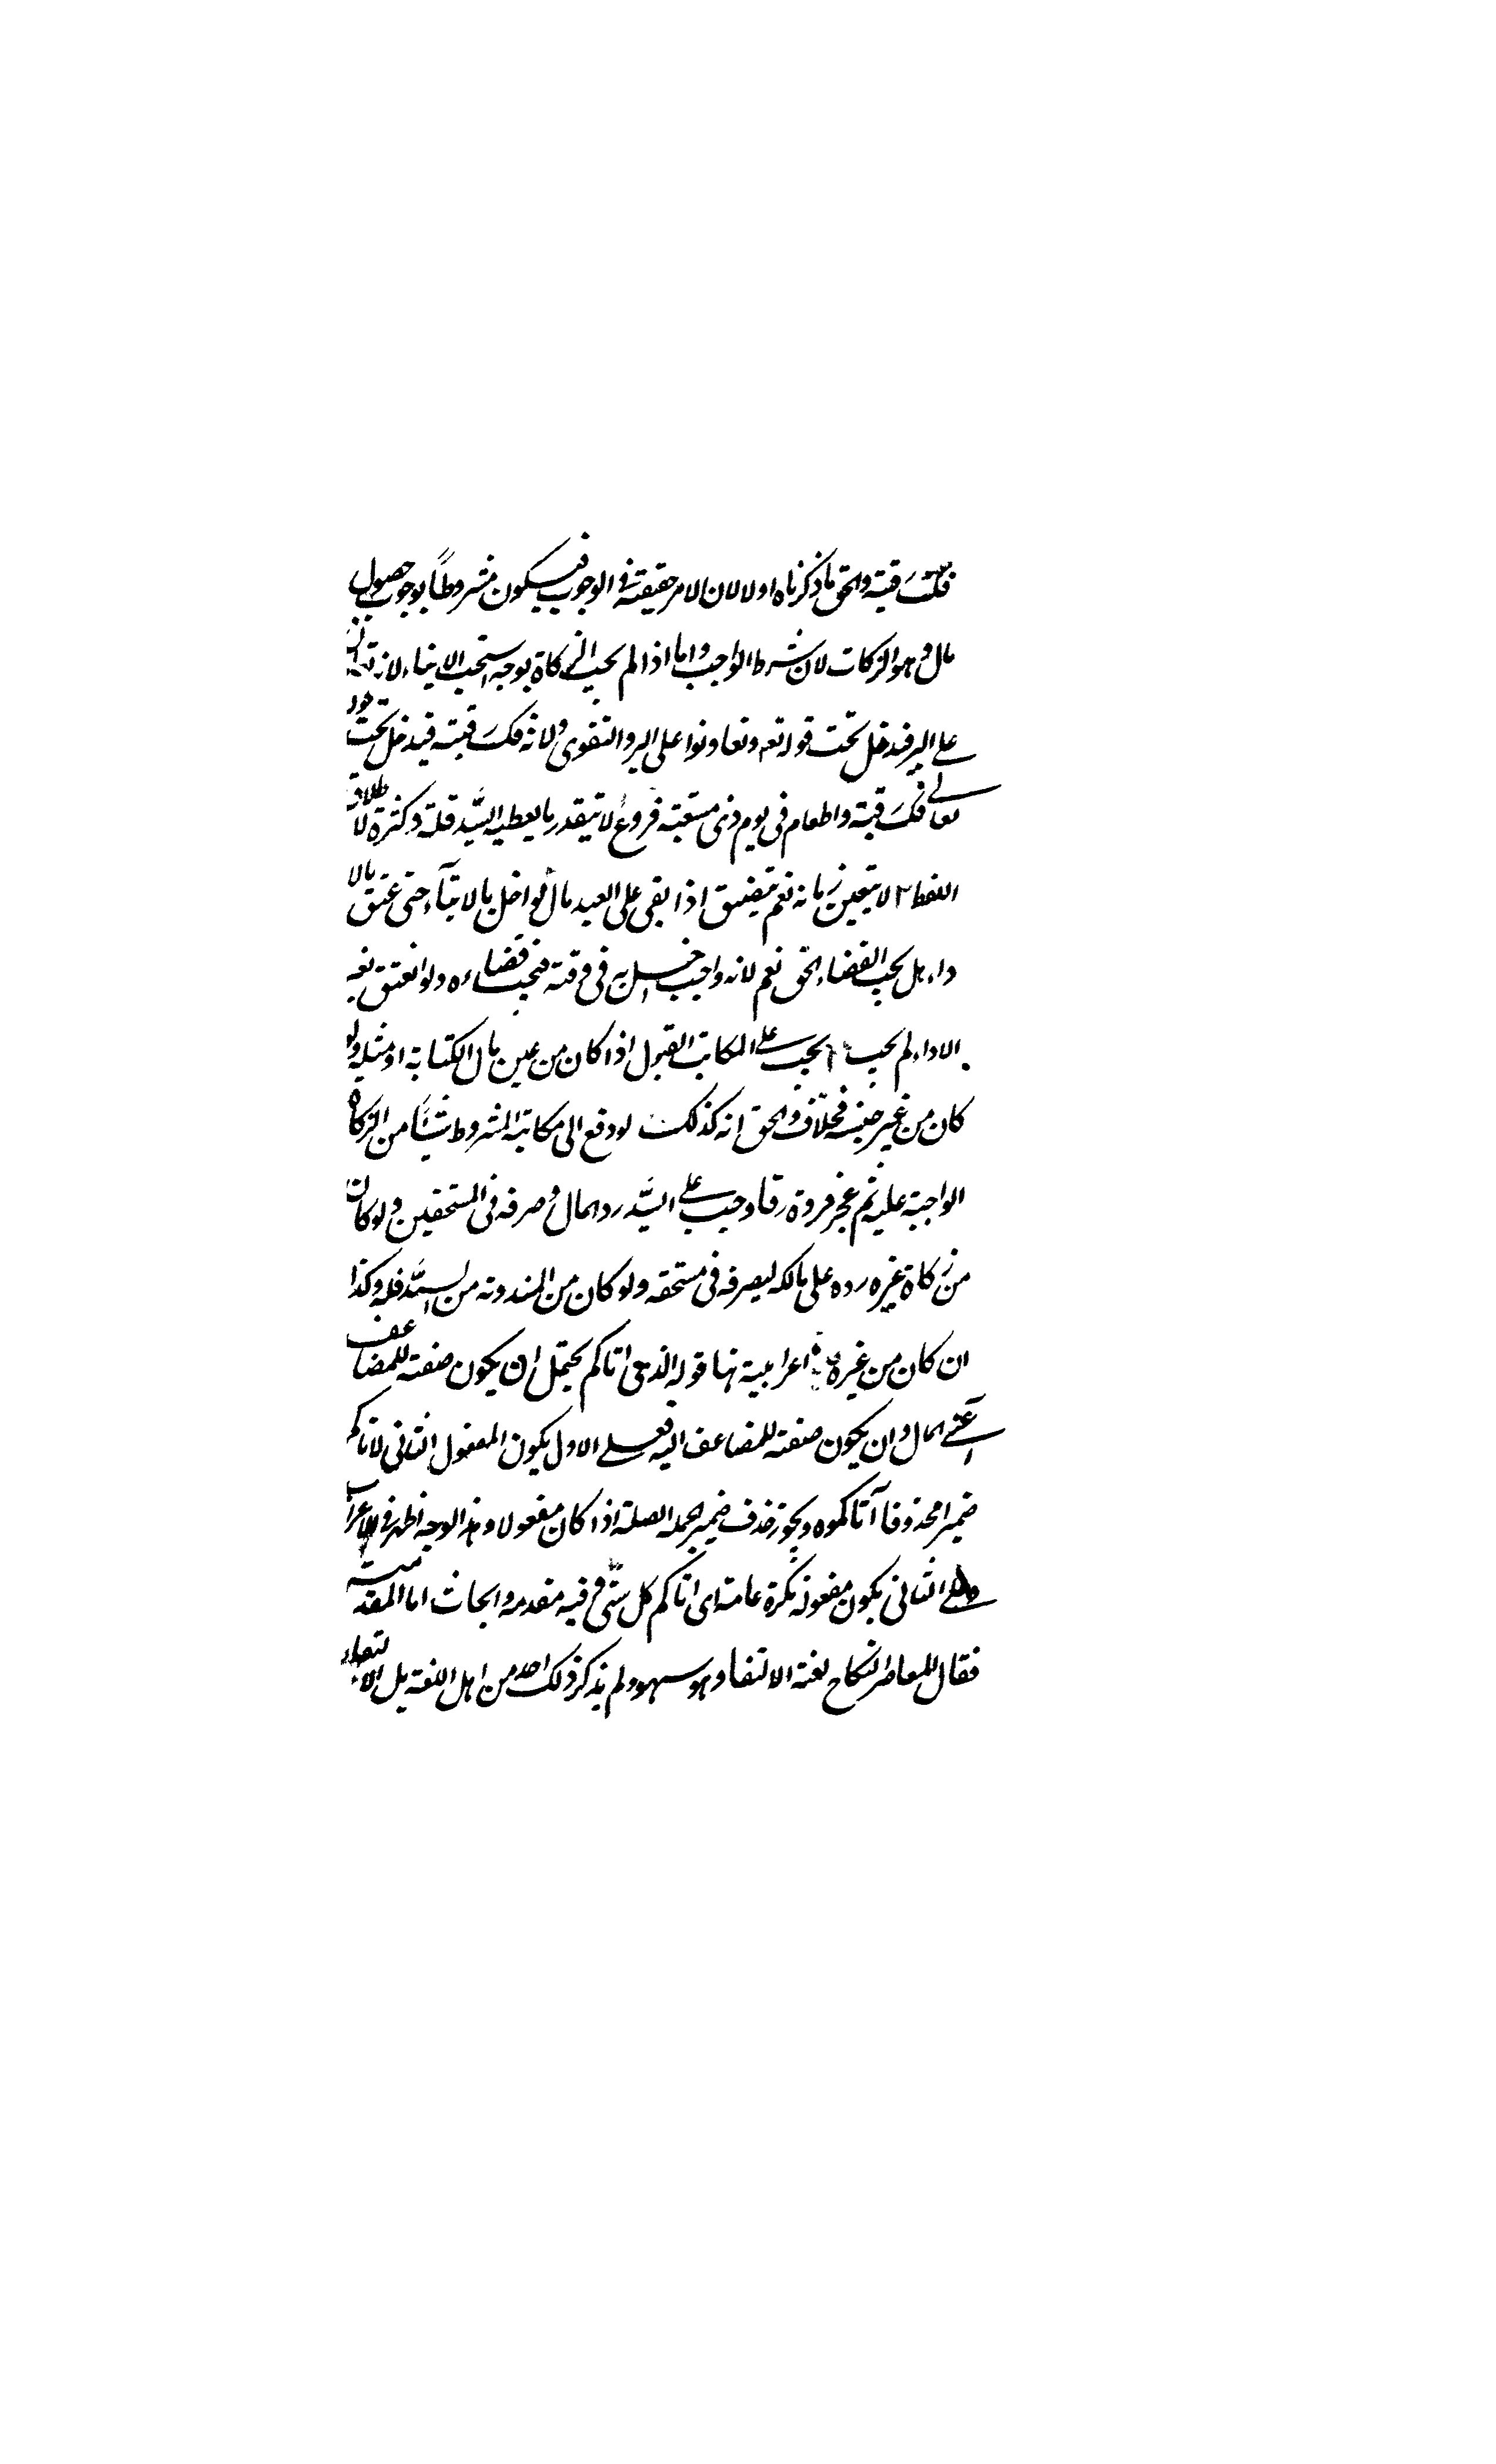 فك رقبة والحق ما ذكرناه اولا لان الامر حقيقة فى الوجوب فيكون مشروطاً بوجوب حصول
مال وهو الزكات لان شرط الواجب واما اذا لم يجب الزكاة بوجه استحب الايتاء لانه تعاون
على البر فيدخل تحت قوله تعه وتعاونوا على البر والتقوى ولانه فك رقبة فيدخل تحت قوله
تعالى فك رقبة واطعام فى يوم ذى مسغبة فروع لا يتقدر ما يعطيه السيّد قلة وكثرة لاطلاق
اللفظ ٢ لا يتعين زمانه نعم يتضيق اذا بقى على العبد مال لو اخل بالايتآء حتى عتق بالا
داء هل يجب القضاء الحق نعم لانه واجب اخل به فى وقته فيجب قضاءه ولو انعتق بغير
الاداء لم يجب ٣ يجب على المكاتب القبول اذا كان من عين مال الكتابة او مثله ولو
كان من غير جنسه فخلاف والحق انه كذلك لو دفع الى مكاتبه المشروط شيئاً من الزكاة
الواجبة عليه ثم عجز فرده رقا وجب على السيّد رد المال وصرفه فى المستحقين ولو كان
من زكاة غيره رده على مالكه ليصرفه فى مستحقه ولو كان من المندوبة من السيّد فله وكذا
ان كان من غيره اعرابية نها قوله الذى اتاكم يحتمل ان يكون صفته للمضاعف
اعنى المال وان يكون صفته للمضاعف اليه فعلى الاول يكون المفعول الثانى لاتاكم
ضميرا محذوفا آتاكموه ويجوز حذف ضمير جملة الصلة اذا كان مفعولا وهذا الوجه اظهر فى الاعراب
وعلى الثانى يكون مفعوله نكرة عامة اى اتاكم كل شئ وفيه مقدمه وابحاث اما المقدمة
فقال المعاصر النكاح لغة الالتقا وهو سهو ولم يذكر ذلك احد من اهل اللغة بل الا